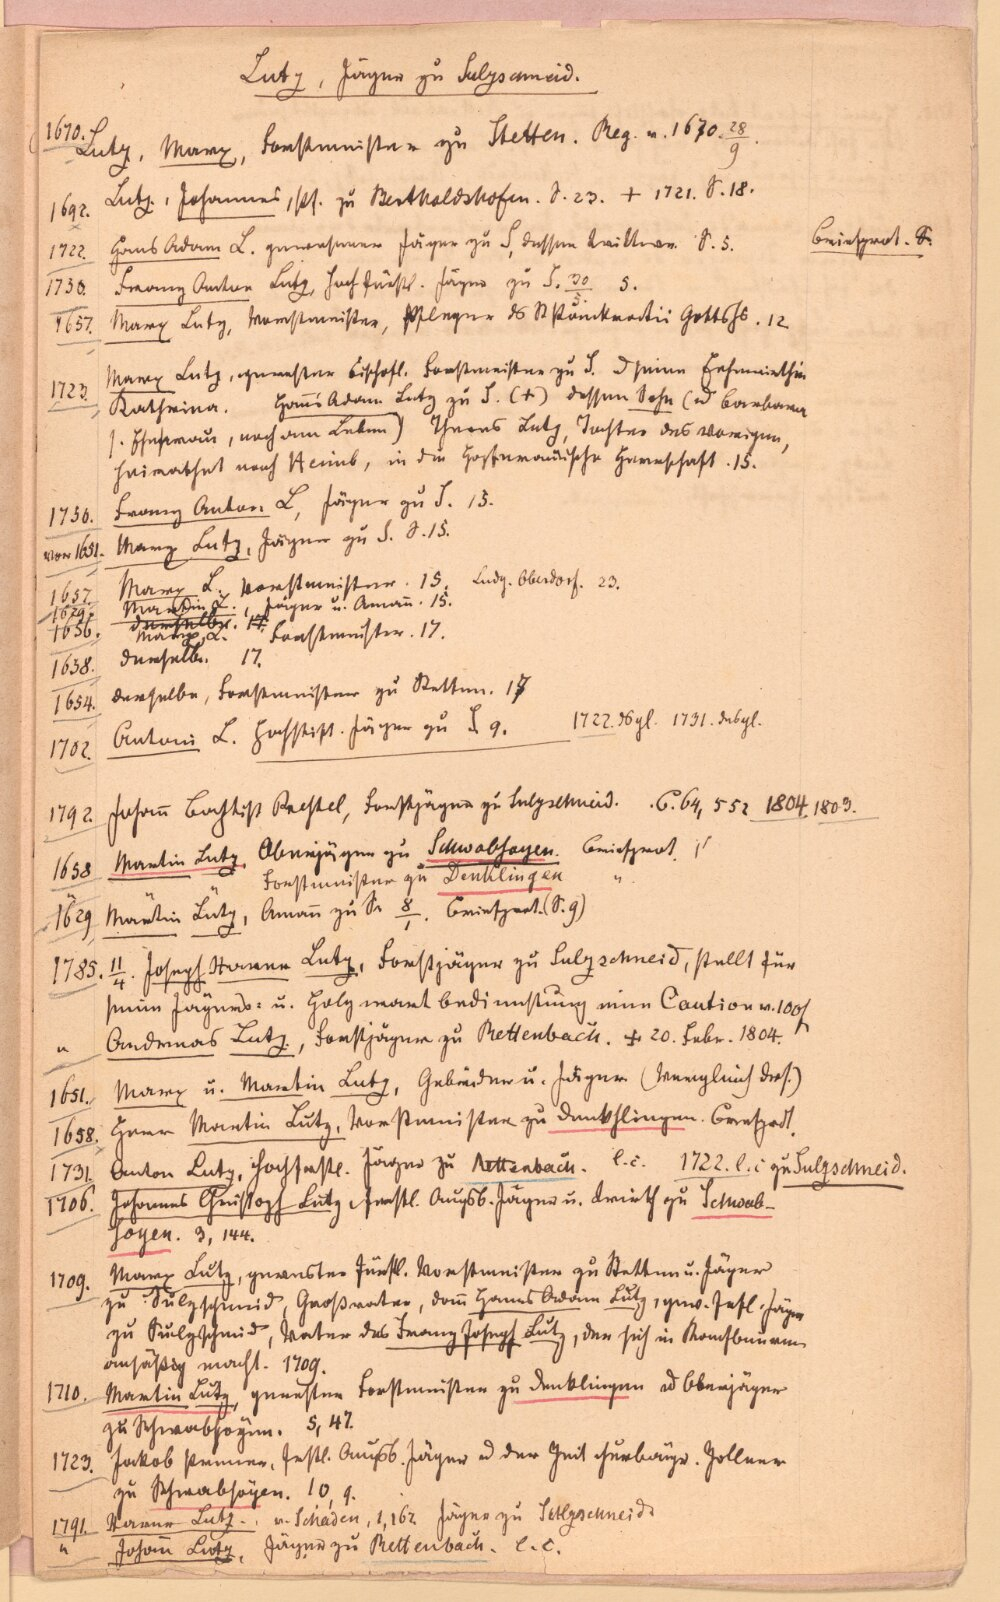 Lutz, Jäger zu Sulzschneid.
1670. Lutz, Marx, Forstmeister zu Stetten. Reg. v. 1670. 28/9.
1692. Lutz, Johannes, Pf. zu Bertholdshofen. S. 23. + 1721. S. 18.
1722. Hans Adam L. gewesener Jäger zu S, dessen Wittwe. S. 5. Briefprot. S.
1730. Franz Anton Lutz, Hochfürstl. Jäger zu S. 30/5. 5.
1657. Marx Lutz, Vorstmeister, Pfleger des St Gottshs. 12
1723. Marx Lutz, gewester bischöfl. Forstmeister zu S. Ehewirthin
Katharina. Hanns Adam Lutz zu S. (+) dessen Sohn (u barbara
s. Ehefrau, noch am Leben) Lutz, Tochter des vorigen,
heirathet nach, in die Herrschaft. 15.
1730. Franz Anton L, Jäger zu S. 15.
vor 1651. Marx Lutz, Jäger zu S. S. 15.
1657. Marx L. Vorstmeister. 15. Ludg. Oberdorf. 23.
1629. Martin L., Jäger u. Amañ. 15.
1656. Marx L. Forstmeister. 17.
1638. derselbe. 17.
1654. derselbe, Forstmeister zu Stetten. 17
1702. Antoni L. Hochstift. Jäger zu S 9. 1722. dsgl. 1731. desgl.
1792. Johañ Baptist Forstjäger zu Sulzschneid. C. 64, 552 1804. 1803.
1658 Martin Lutz Oberjäger zu Schwabsoyen. Briefprot.
Forstmeister zu Denklingen "
1629 Martin Lutz, Amañ zu S. 8/1. Briefprot. (S. 9)
1785. 11/4. Joseph Lutz, Forstjäger zu Sulzschneid, stellt für
seine Jägers= u. Holzwartbedienstung eine Caution v. 100f
" Andreas Lutz, Forstjäger zu Rettenbach. + 20. Febr. 1804.
1651. Marx u. Martin Lutz, Gebrüder u. Jäger (Vergleich ders.)
1658. Herr Martin Lutz, Vorstmeister zu Denkhlingen. Briefprot.
1731. Anton Lutz, Hochfrstl. Jäger zu Rettenbach. l. c. 1722. l. c zu Sulzschneid.
1706. Johannes Christoph Lutz, frstl. Augsb. Jäger u. Wirth zu Schwab-
soyen. 3, 144.
1709. Marx Lutz, gewester Fürstl. Vorstmeister zu Stetten u. Jäger
zu Sulzschneid, Großvater, dañ Hanns Adam Lutz, gew. frstl. Jäger
zu Sulzschneid, Vater des Franz Joseph Lutz, der sich in
ansäßig macht. 1709.
1710. Martin Lutz, gewester Forstmeister zu Denklingen u Oberjäger
zu Schwabsoyen. 5, 47.
1723. Jakob frstl. Augsb. Jäger u der Zeit churbayr. Zollner
zu Schwabsoyen. 10, 9.
1791. Lutz. v. Schaden, 1, 162 Jäger zu Sulzschneid
" Johañ Lutz, Jäger zu Rettenbach. l. c.